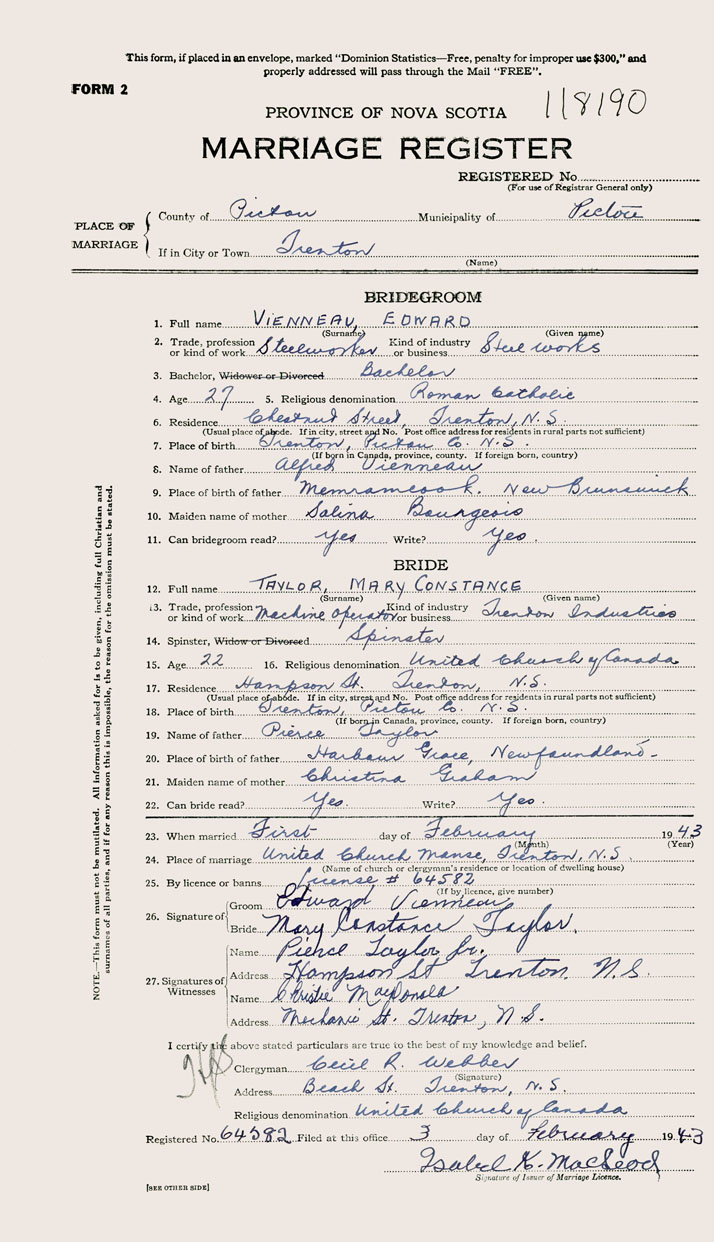 This form, if placed in an envelope, marked "Dominion Statistics—Free, penalty for improper use $300," and
properly addressed will pass through the Mail "FREE".
FORM 2
118190
PROVINCE OF NOVA SCOTIA
MARRIAGE REGISTER
REGISTERED No.
(For use of Registrar General only)
PLACE OF MARRIAGE
County of Pictou Municipality of Pictou
If in City or Town Trenton
(Name)
BRIDEGROOM
1. Full name VIENNEAU, EDWARD
(Surname) (Given name)
2. Trade, profession or kind of work Steelworker Kind of industry or business Steel works
3. Bachelor, Widower or Divorced Bachelor
4. Age 27 5. Religious denomination Roman Catholic
6. Residence Chestnut Street, Trenton, N.S.
(Usual place of abode. If in city, street and No. Post office address for residents in rural parts not sufficient)
7. Place of birth Trenton, Pictou Co. N.S.
(If born in Canada, province, county. If foreign born, country)
8. Name of father Alfred Vienneau
9. Place of birth of father Memramcook. New Brunswick
10. Maiden name of mother Salina Bourgeois
11. Can bridegroom read? Yes Write? Yes.
BRIDE
12. Full name TAYLOR, MARY CONSTANCE
(Surname) (Given name)
13. Trade, profession or kind of work Machine Operator Kind of industry or business Trenton Industries
14. Spinster, Widow or Divorced Spinster
15. Age 22 16. Religious denomination United Church of Canada
17. Residence Hampson St. Trenton, N.S.
(Usual place of abode. If in city, street and No. Post office address for residents in rural parts not sufficient)
18. Place of birth Trenton, Pictou Co. N.S.
(If born in Canada, province, county. If foreign born, country)
19. Name of father Pierce Taylor
20. Place of birth of father Harbour Grace, Newfoundland.
21. Maiden name of mother Christina Graham
22. Can bride read? Yes. Write? Yes.
23. When married First day of February 1943
(Month) (Year)
24. Place of marriage United Church Manse, Trenton, N.S.
(Name of church or clergyman's residence or location of dwelling house)
25. By licence or banns License # 64582
(If by licence, give number)
26. Signature of
Groom Edward Vienneau
Bride Mary Constance Taylor.
27. Signatures of Witnesses
Name Pierce Taylor Jr.
Address Hampson St Trenton N.S.
Name Christie MacDonald
Address Mechanic St. Trenton, N.S.
I certify the above stated particulars are true to the best of my knowledge and belief.
Clergyman Cecil R. Webber
(Signature)
Address Beach St. Trenton, N.S.
Religious denomination United Church of Canada
Registered No. 64582 Filed at this office 3 day of February 1943
Isabel K. MacLeod
Signature of Issuer of Marriage Licence.
[SEE OTHER SIDE]
NOTE.—This form must not be mutilated. All information asked for is to be given, including full Christian and
surnames of all parties, and if for any reason this is impossible, the reason for the omission must be stated.